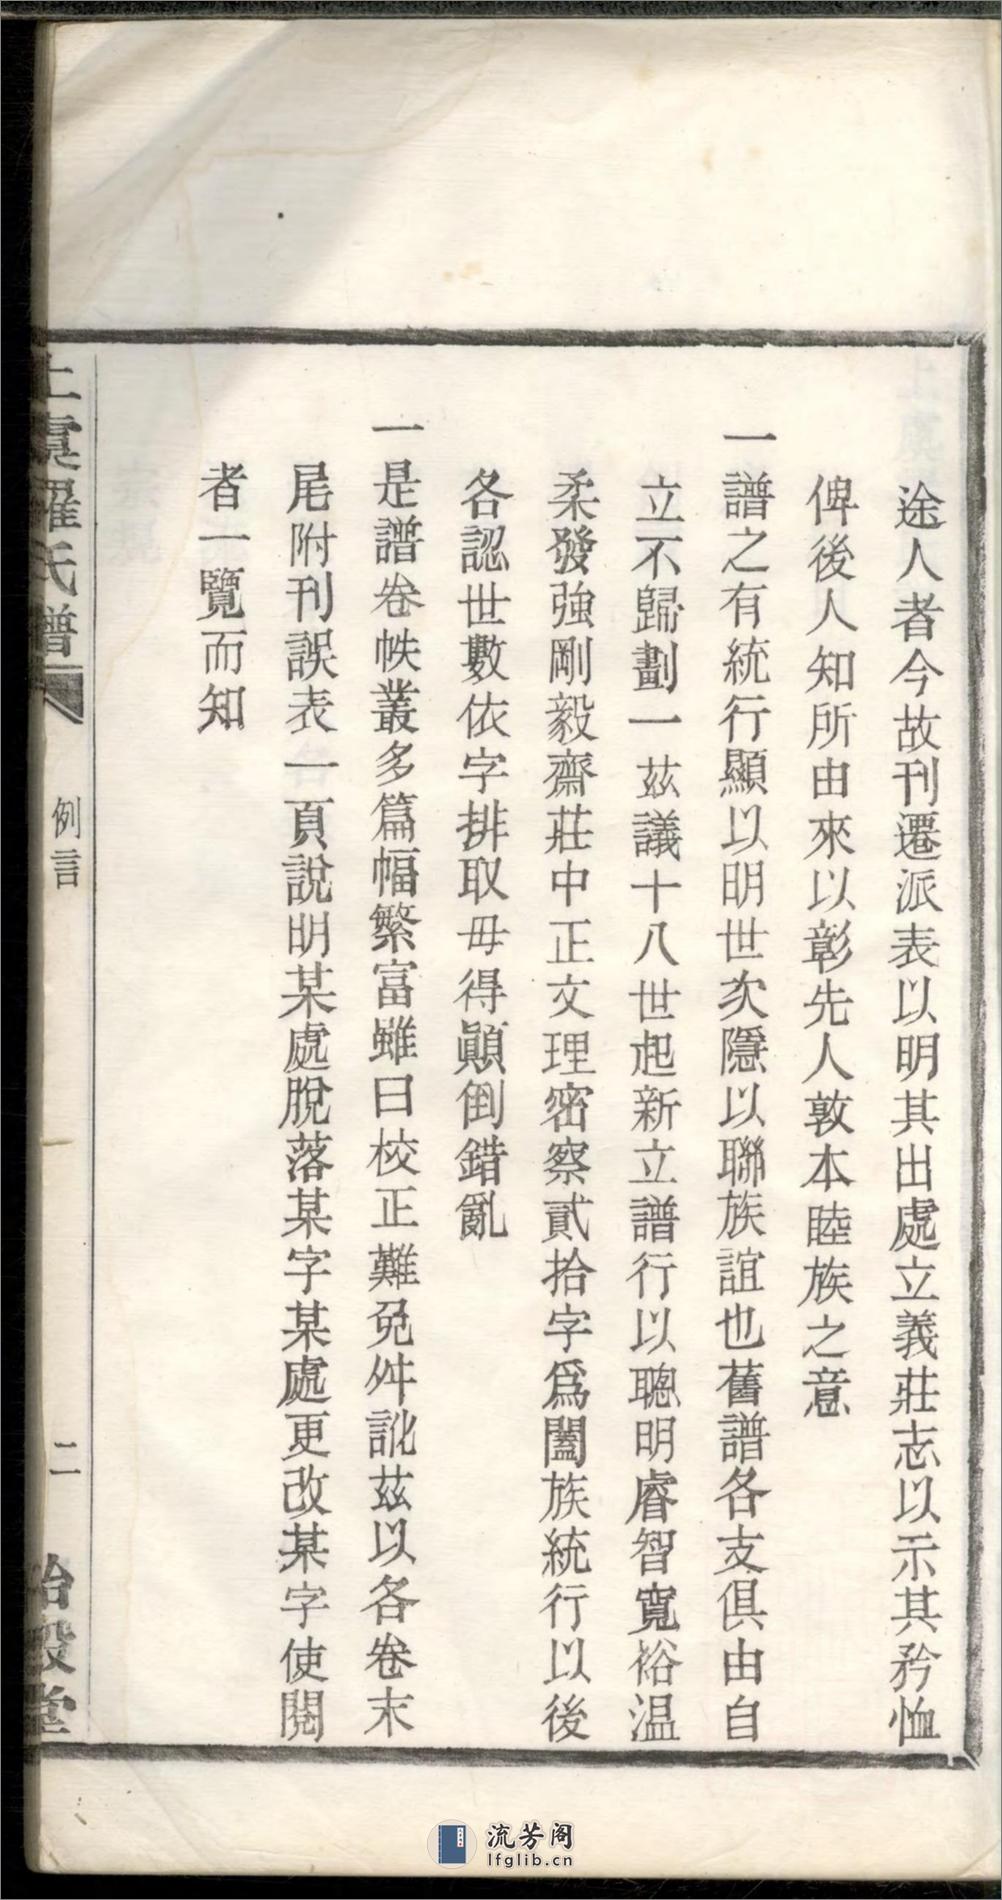 途人者今故刊遷派表以明其出處立義莊志以示其矜恤
俾後人知所由來以彰先人敦本睦族之意
一譜之有統行顯以明世次隱以聯族誼也舊譜各支俱由自
立不歸劃一茲議十八世起新立譜行以聰明睿智寬裕温
柔發強剛毅齋莊中正文理密察貳拾字爲闔族統行以後
各認世數依字排取毋得顚倒錯亂
一是譜卷帙叢多篇幅繁富雖曰校正難免舛訛茲以各卷末
尾附刊誤表一頁說明某處脫落某字某處更改某字使閱
者一覽而知
上虞羅氏譜
例言
二
流芳阁
lfglib.cn